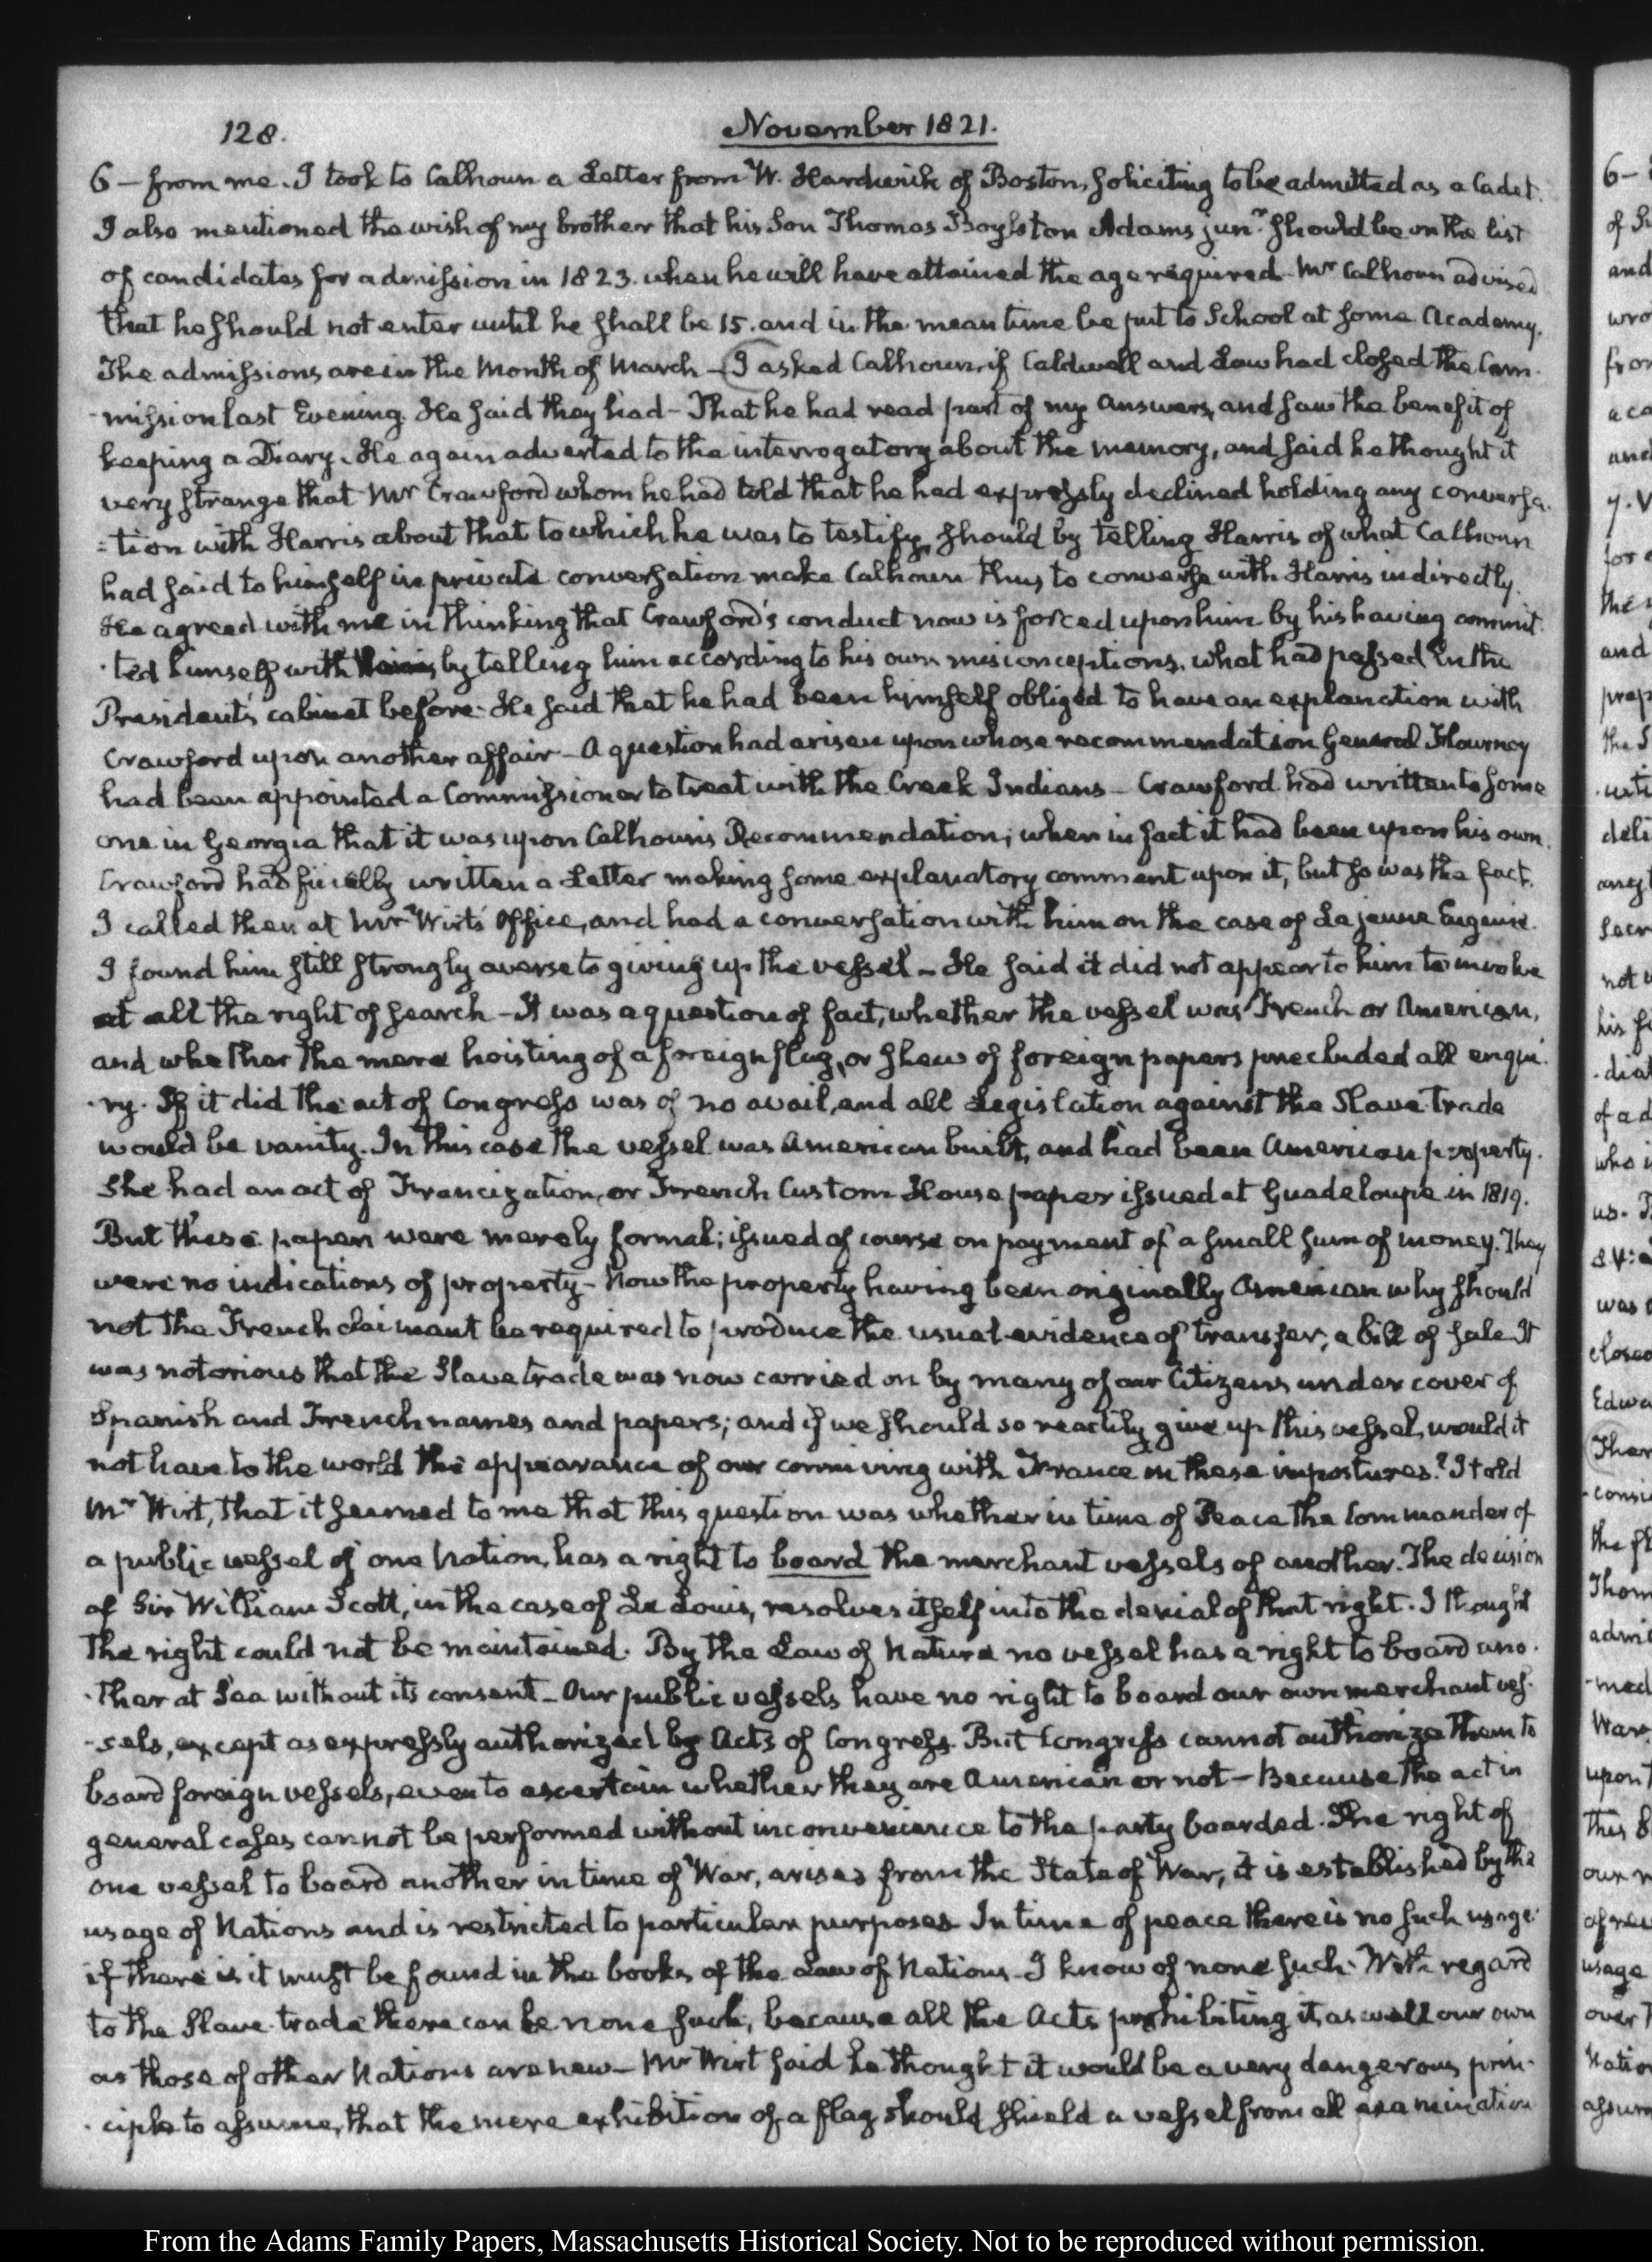 128.
November 1821.
6 — from me. I took to Calhoun a Letter from W. Hardwick of Boston, soliciting to be admitted as a Cadet.
I also mentioned the wish of my brother that his Son Thomas Boylston Adams junr. should be on the list
of candidates for admission in 1823. when he will have attained the age required — Mr Calhoun advised
that he should not enter until he shall be 15. and in the mean time be put to School at some Academy.
The admissions are in the Month of March — I asked Calhoun, if Caldwell and Law had closed the Com-
-mission last Evening. He said they had — That he had read part of my Answers, and saw the benefit of
keeping a Diary. He again adverted to the interrogatory about the memory, and said he thought it
very strange that Mr Crawford whom he had told that he had expressly declined holding any conversa-
-tion with Harris about that to which he was to testify, should by telling Harris of what Calhoun
had said to himself in private conversation make Calhoun thus to converse with Harris indirectly.
He agreed with me in thinking that Crawford's conduct now is forced upon him by his having commit-
-ted himself with by telling him according to his own misconceptions, what had passed in the
President's cabinet before. He said that he had been himself obliged to have an explanation with
Crawford upon another affair — A question had arisen upon whose recommendation General Flournoy
had been appointed a Commissioner to treat with the Creek Indians — Crawford had written to some
one in Georgia that it was upon Calhoun's Recommendation; when in fact it had been upon his own.
Crawford had finally written a Letter making some explanatory comment upon it, but so was the fact.
I called then at Mr Wirt's Office, and had a conversation with him on the case of La jeune Eugenie.
I found him still strongly averse to giving up the vessel — He said it did not appear to him to involve
at all the right of search — It was a question of fact, whether the vessel was French or American,
and whether the mere hoisting of a foreign flag, or shew of foreign papers precluded all enqui-
-ry. If it did the act of Congress was of no avail, and all Legislation against the Slave-trade
would be vanity. In this case the vessel was American built, and had been American property.
She had an act of Francization, or French Custom House paper issued at Guadeloupe in 1819.
But these papers were merely formal; issued of course on payment of a small sum of money. They
were no indications of property — Now the property having been originally American why should
not the French claimant be required to produce the usual evidence of transfer; a bill of sale. It
was notorious that the Slave trade was now carried on by many of our Citizens under cover of
Spanish and French names and papers; and if we should so readily give up this vessel, would it
not have to the world the appearance of our conniving with France in these impostures? I told
Mr Wirt, that it seemed to me that this question was whether in time of Peace the Commander of
a public vessel of one Nation, has a right to board the merchant vessels of another. The decision
of Sir William Scott, in the case of Le Louis, resolves itself into the denial of that right. I thought
the right could not be maintained. By the Law of Nature no vessel has a right to board ano-
-ther at Sea without its consent — Our public vessels have no right to board our own merchant ves-
-sels, except as expressly authorized by Acts of Congress. But Congress cannot authorize them to
board foreign vessels, even to ascertain whether they are American or not — Because the act in
general cases cannot be performed without inconvenience to the party boarded. The right of
one vessel to board another in time of War, arises from the State of War, it is established by the
usage of Nations and is restricted to particular purposes. In time of peace there is no such usage
if there is it must be found in the books of the Law of Nations — I know of none such. With regard
to the Slave-trade there can be none such, because all the Acts prohibiting it, as well our own
as those of other Nations are new — Mr Wirt said he thought it would be a very dangerous prin-
-ciple to assume, that the mere exhibition of a flag should shield a vessel from all examination
From the Adams Family Papers, Massachusetts Historical Society. Not to be reproduced without permission.